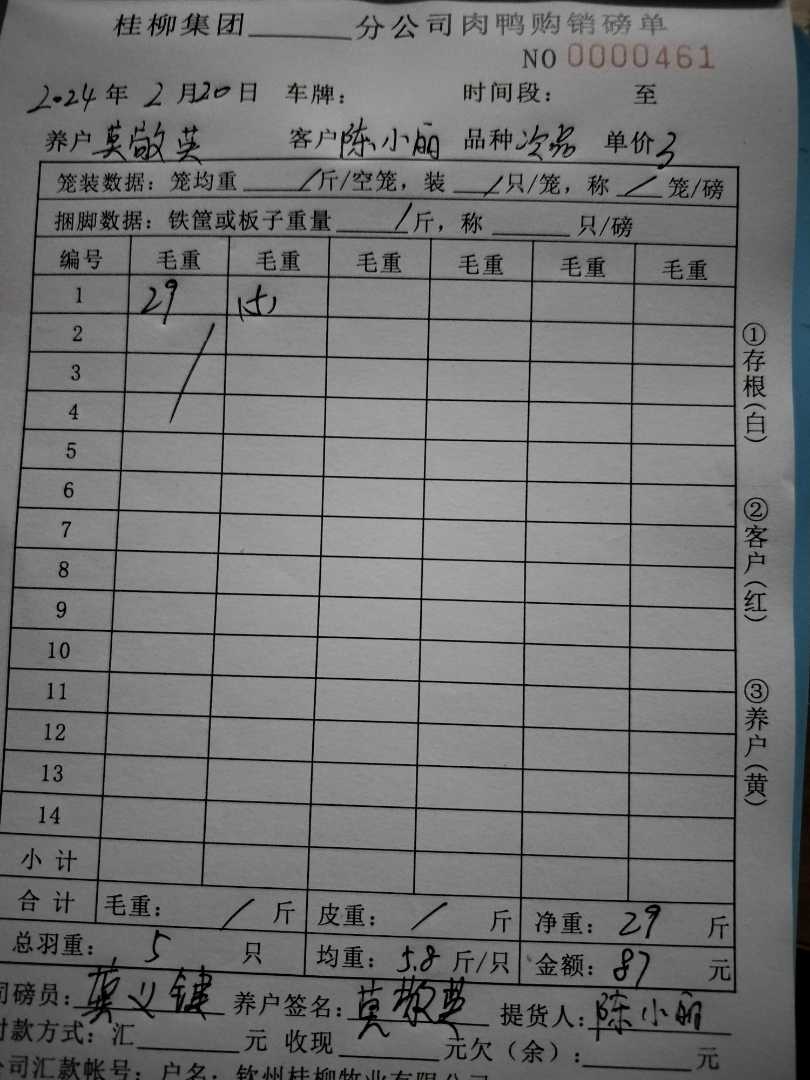 桂柳集团______分公司肉鸭购销磅单
NO 0000461
2024年 2月20日 车牌: 时间段: 至
养户 莫敬英 客户 陈小丽 品种 次品 单价 3
笼装数据:笼均重 / 斤/空笼,装 / 只/笼,称 / 笼/磅
捆脚数据:铁筐或板子重量 / 斤,称 ______ 只/磅
编号 毛重 毛重 毛重 毛重 毛重 毛重
1 29 (5)
2
3
4
5
6
7
8
9
10
11
12
13
14
小计
合计 毛重: / 斤 皮重: / 斤 净重: 29 斤
总羽重: 5 只 均重: 5.8 斤/只 金额: 87 元
司磅员: 莫义键 养户签名: 莫敬英 提货人: 陈小丽
付款方式:汇______元 收现______元欠(余):______元
公司汇款帐号:户名:钦州桂柳牧业有限公司
①存根(白) ②客户(红) ③养户(黄)